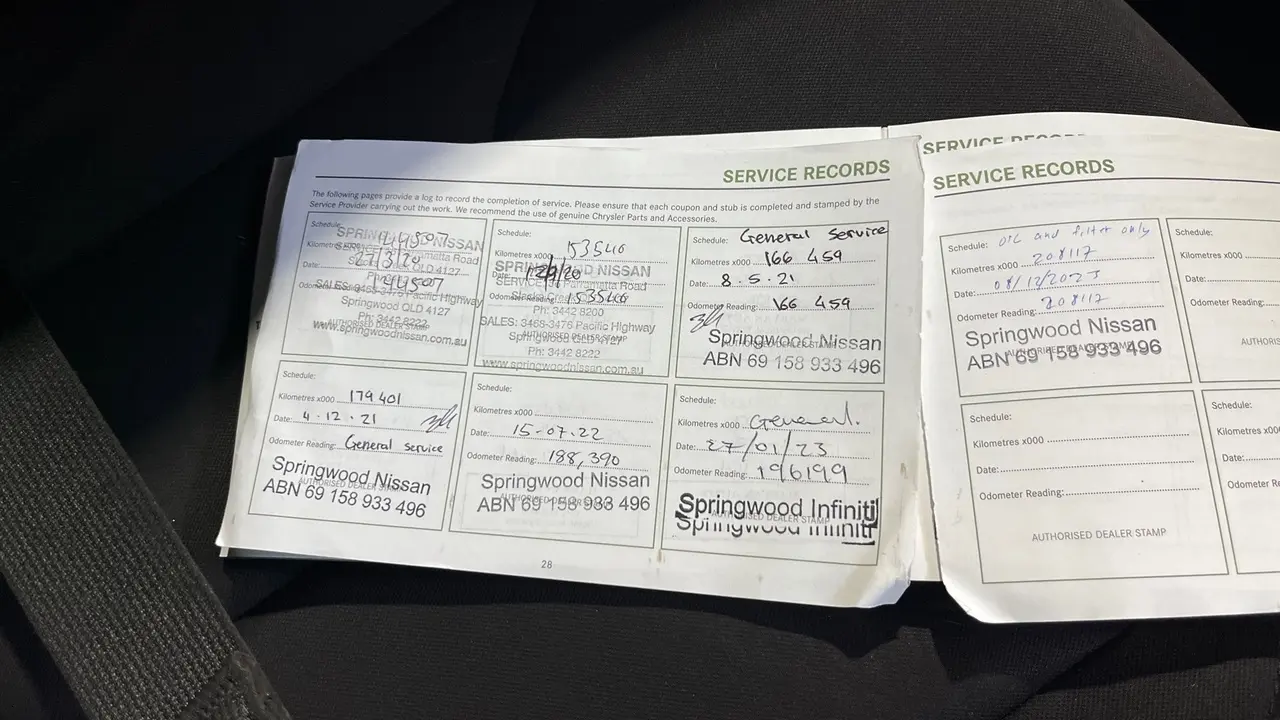 SERVICE RECORDS
The following pages provide a log to record the completion of service. Please ensure that each coupon and stub is completed and stamped by the
Service Provider carrying out the work. We recommend the use of genuine Chrysler Parts and Accessories.
Schedule:
Kilometres x000 144507
Date: 27/3/20
Odometer Reading: 144507
SPRINGWOOD NISSAN
Parramatta Road
QLD 4127
SALES: 3468-3476 Pacific Highway
Springwood QLD 4127
Ph: 3442 8222
www.springwoodnissan.com.au
AUTHORISED DEALER STAMP
Schedule:
Kilometres x000 153546
Date:
Odometer Reading: 153546
SPRINGWOOD NISSAN
SERVICE: Parramatta Road
Ph: 3442 8200
SALES: 3468-3476 Pacific Highway
Springwood QLD 4127
AUTHORISED DEALER STAMP
Ph: 3442 8222
www.springwoodnissan.com.au
Schedule: General Service
Kilometres x000 166 459
Date: 8.5.21
Odometer Reading: 166 459
Springwood Nissan
AUTHORISED DEALER STAMP
ABN 69 158 933 496
Schedule:
Kilometres x000 179 401
Date: 4.12.21
Odometer Reading: General service
Springwood Nissan
AUTHORISED DEALER STAMP
ABN 69 158 933 496
Schedule:
Kilometres x000
Date: 15-07-22
Odometer Reading: 188,390
Springwood Nissan
AUTHORISED DEALER STAMP
ABN 69 158 933 496
Schedule:
Kilometres x000 General.
Date: 27/01/23
Odometer Reading: 196199
Springwood Infiniti
AUTHORISED DEALER STAMP
Springwood Infiniti
28
SERVICE RECORDS
SERVICE RECORDS
Schedule: OIL and filter only
Kilometres x000 208117
Date: 08/12/2023
Odometer Reading: 208117
Springwood Nissan
AUTHORISED DEALER STAMP
ABN 69 158 933 496
Schedule:
Kilometres x000
Date:
Odometer Reading:
Schedule:
Kilometres x000
Date:
Odometer Reading:
AUTHORISED DEALER STAMP
Schedule:
Date:
Odometer Reading: